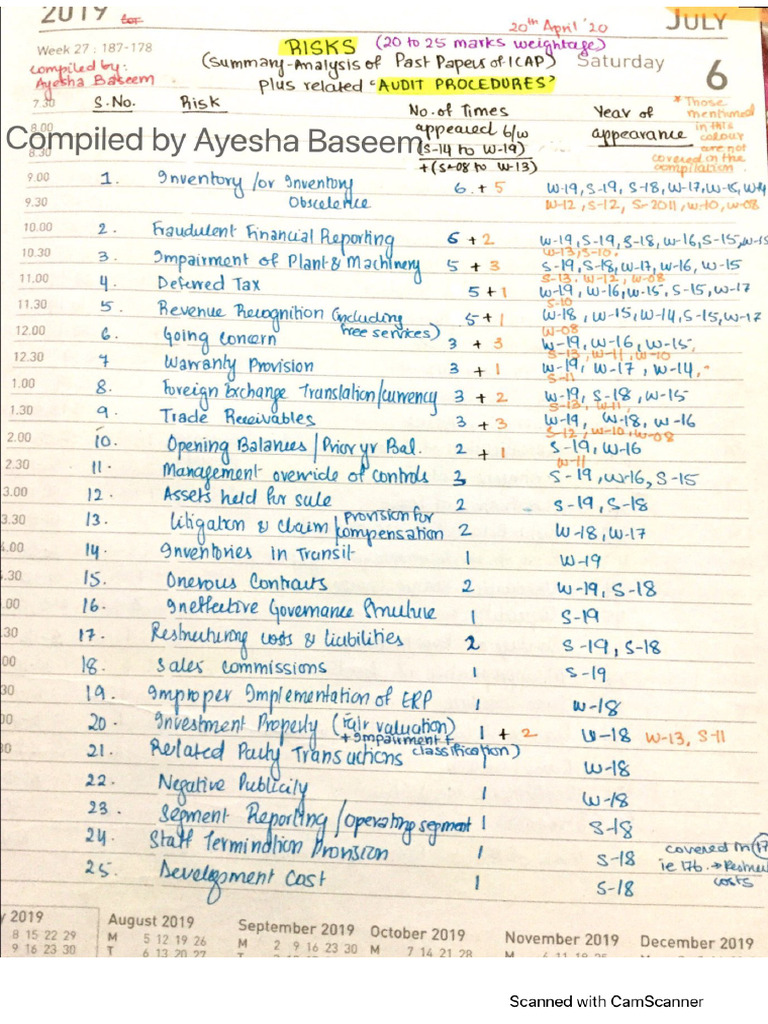 2019 for 20th April '20 JULY
Week 27 : 187-178 RISKS (20 to 25 marks weightage)
compiled by: (Summary-Analysis of Past Papers of ICAP) Saturday
Ayesha Baseem plus related 'AUDIT PROCEDURES' 6
7.30 S.No. Risk No. of Times Year of *Those
8.00 appeared b/w appearance mentioned
Compiled by Ayesha Baseem (S-14 to W-19) in this colour
8.30 +(S-08 to W-13) are not
covered in the
compilation.
9.00 1. Inventory /or Inventory 6 + 5 W-19, S-19, S-18, W-17, W-15, W-14
9.30 Obscelence W-12, S-12, S-2011, W-10, W-08
10.00 2. Fraudulent Financial Reporting 6 + 2 W-19, S-19, S-18, W-16, S-15, W-15
W-13, S-10.
10.30 3. Impairment of Plant & Machinery 5 + 3 S-19, S-18, W-17, W-16, W-15
S-13, W-12, W-08
11.00 4. Deferred Tax 5 + 1 W-19, W-16, W-15, S-15, W-17
S-10
11.30 5. Revenue Recognition (including free services) 5 + 1 W-18, W-15, W-14, S-15, W-17
W-08
12.00 6. Going concern 3 + 3 W-19, W-16, W-15,
S-13, W-11, W-10
12.30 7 Warranty Provision 3 + 1 W-19, W-17, W-14,
S-11
1.00 8. Foreign Exchange Translation/currency 3 + 2 W-19, S-18, W-15
S-13, W-11,
1.30 9. Trade Receivables 3 + 3 W-19, W-18, W-16
S-12, W-10, W-08
2.00 10. Opening Balances / Prior yr Bal. 2 + 1 S-19, W-16
W-11
2.30 11. Management override of controls 3 S-19, W-16, S-15
3.00 12. Assets held for sale 2 S-19, S-18
3.30 13. Litigation & claim / provision for compensation 2 W-18, W-17
4.00 14. Inventories in Transit 1 W-19
.30 15. Onerous Contracts 2 W-19, S-18
.00 16. Ineffective Governance Structure 1 S-19
30 17. Restructuring costs & liabilities 2 S-19, S-18
00 18. Sales commissions 1 S-19
30 19. Improper Implementation of ERP 1 W-18
00 20. Investment Property (fair valuation) 1 + 2 W-18 W-13, S-11
+ Impairment + classification)
30 21. Related Party Transactions 1 W-18
22. Negative Publicity 1 W-18
23. Segment Reporting / Operating segment 1 S-18
24. Staff Termination Provision 1 S-18 covered in 17
ie 17b. → Restruc
25. Development Cost 1 S-18 costs
y 2019 August 2019 September 2019 October 2019 November 2019 December 2019
8 15 22 29 M 5 12 19 26 M 2 9 16 23 30 M 7 14 21 28
9 16 23 30 T 6 13 20 27
Scanned with CamScanner